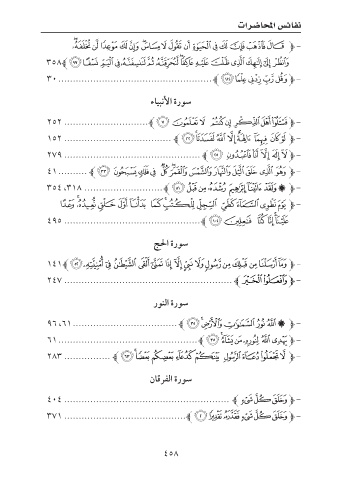 نفائس المحاضرات
- ﴿ قَالَ فَاذْهَبْ فَإِنَّ لَكَ فِي الْحَيَاةِ أَن تَقُولَ لَا مِسَاسَ وَإِنَّ لَكَ مَوْعِدًا لَّن تُخْلَفَهُ،
وَانظُرْ إِلَى إِلَهِكَ الَّذِي ظَلْتَ عَلَيْهِ عَاكِفًا لَّنُحَرِّقَنَّهُ ثُمَّ لَنَنسِفَنَّهُ فِي الْيَمِّ نَسْفًا ٩٧ ﴾ ٣٥٨
- ﴿ وَقُل رَّبِّ زِدْنِي عِلْمًا ١١٤ ﴾ ........ ٣٠
سورة الأنبياء
- ﴿ فَسْـَٔلُوٓا۟ أَهْلَ الذِّكْرِ إِن كُنتُمْ لَا تَعْلَمُونَ ٧ ﴾ ........ ٢٥٢
- ﴿ لَوْ كَانَ فِيهِمَا ءَالِهَةٌ إِلَّا اللَّهُ لَفَسَدَتَا ٢٢ ﴾ ........ ١٥٢
- ﴿ لَا إِلَهَ إِلَّا أَنَا فَاعْبُدُونِ ٢٥ ﴾ ........ ٢٧٩
- ﴿ وَهُوَ الَّذِي خَلَقَ الَّيْلَ وَالنَّهَارَ وَالشَّمْسَ وَالْقَمَرَ كُلٌّ فِي فَلَكٍ يَسْبَحُونَ ٣٣ ﴾ ........ ٤١
- ﴿ ۞ وَلَقَدْ ءَاتَيْنَا إِبْرَاهِيمَ رُشْدَهُ، مِن قَبْلُ ٥١ ﴾ ........ ٣١٨، ٣٥٤
- ﴿ يَوْمَ نَطْوِي السَّمَاءَ كَطَيِّ السِّجِلِّ لِلْكُتُبِ كَمَا بَدَأْنَا أَوَّلَ خَلْقٍ نُّعِيدُهُ، وَعْدًا
عَلَيْنَا إِنَّا كُنَّا فَاعِلِينَ ١٠٤ ﴾ ........ ٤٩٥
سورة الحج
- ﴿ وَمَا أَرْسَلْنَا مِن قَبْلِكَ مِن رَّسُولٍ وَلَا نَبِيٍّ إِلَّا إِذَا تَمَنَّى أَلْقَى الشَّيْطَانُ فِي أُمْنِيَّتِهِ، ٥٢ ﴾ ١٤١
- ﴿ وَافْعَلُوا الْخَيْرَ ﴾ ........ ٢٤٧
سورة النور
- ﴿ ۞ اللَّهُ نُورُ السَّمَاوَاتِ وَالْأَرْضِ ٣٥ ﴾ ........ ٦١، ٩٦
- ﴿ يَهْدِي اللَّهُ لِنُورِهِ، مَن يَشَاءُ ٣٥ ﴾ ........ ٦١
- ﴿ لَّا تَجْعَلُوا دُعَاءَ الرَّسُولِ بَيْنَكُمْ كَدُعَاءِ بَعْضِكُم بَعْضًا ٦٣ ﴾ ........ ٢٨٣
سورة الفرقان
- ﴿ وَخَلَقَ كُلَّ شَيْءٍ ﴾ ........ ٤٠٤
- ﴿ وَخَلَقَ كُلَّ شَيْءٍ فَقَدَّرَهُ تَقْدِيرًا ٢ ﴾ ........ ٣٧١
٤٥٨